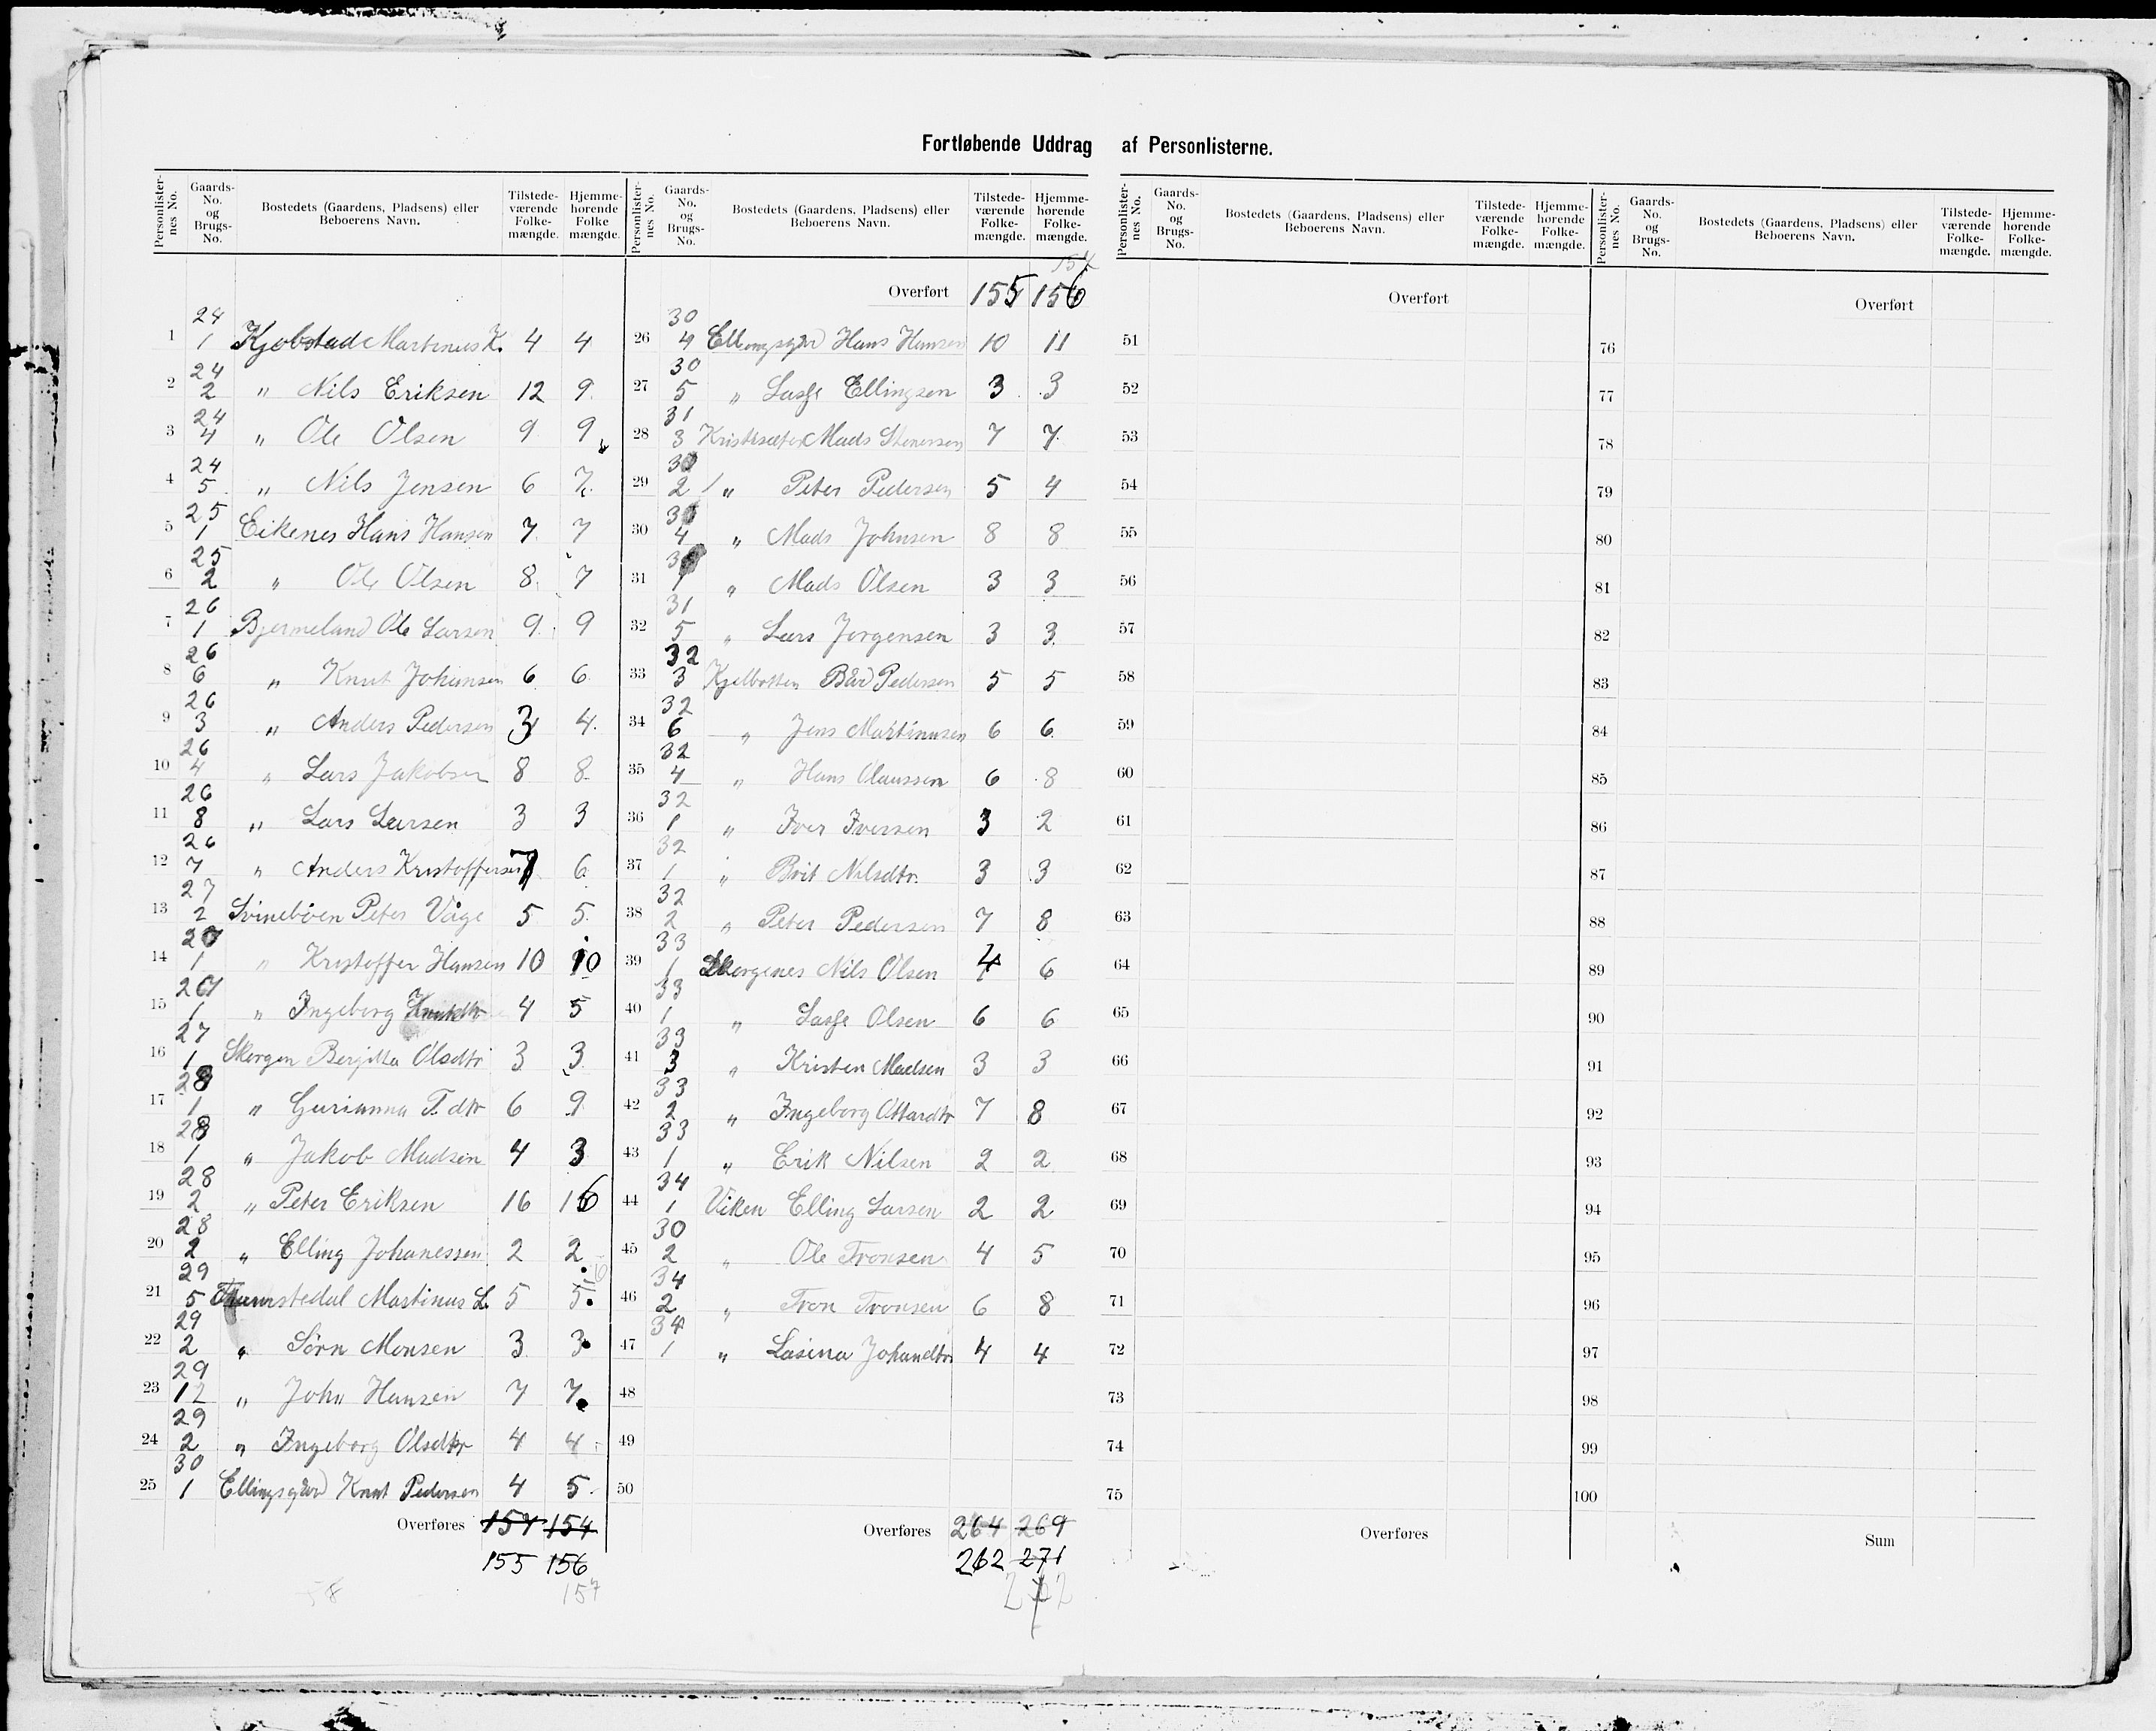 Fortløbende Uddrag af Personlisterne.
Personlisternes No. Gaards-No. og Brugs-No. Bostedets (Gaardens, Pladsens) eller Beboerens Navn. Tilstedeværende Folkemængde. Hjemmehørende Folkemængde.
24
1 1 Kjøbstad Martinus K. 4 4
24
2 2 " Nils Eriksen 12 9
24
3 4 " Ole Olsen 9 9
24
4 5 " Nils Jensen 6 7
25
5 1 Eikenes Hans Hansen 7 7
25
6 2 " Ole Olsen 8 7
26
7 1 Bjermeland Ole Larsen 9 9
26
8 6 " Knut Johansen 6 6
26
9 3 " Anders Pedersen 3 4
26
10 4 " Lars Jakobsen 8 8
26
11 8 " Lars Larsen 3 3
26
12 7 " Anders Kristoffersen 7 6
27
13 2 Svinebøen Peter Våge 5 5
27
14 1 " Kristoffer Hansen 10 10
27
15 1 " Ingeborg Knutdtr 4 5
27
16 1 Skorgen Bergitta Olsdtr 3 3
28
17 1 " Gurianna T. dtr 6 9
28
18 1 " Jakob Madsen 4 3
28
19 2 " Peter Eriksen 16 16
28
20 2 " Elling Johanessen 2 2
29
21 5 Martinus L. 5 5 6
29
22 2 " Sørn Monsen 3 3
29
23 12 " John Hansen 7 7
29
24 2 " Ingeborg Olsdtr 4 4
30
25 1 Ellingsgård Knut Pedersen 4 5
Overføres 157 154
155 156
58 157
Personlisternes No. Gaards-No. og Brugs-No. Bostedets (Gaardens, Pladsens) eller Beboerens Navn. Tilstedeværende Folkemængde. Hjemmehørende Folkemængde.
157
Overført 155 156
30
26 4 Ellingsgård Hans Hansen 10 11
30
27 5 " Lasse Ellingsen 3 3
31
28 3 Mads Stenersen 7 7
29 2 " Peter Pedersen 5 4
30 4 " Mads Johnsen 8 8
31 1 " Mads Olsen 3 3
31
32 5 " Lars Jorgensen 3 3
32
33 3 Kjelbotten Bår Pedersen 5 5
32
34 6 " Jens Martinusen 6 6
32
35 4 " Hans Olaussen 6 8
32
36 1 " Iver Iversen 3 2
32
37 1 " Brit Nilsdtr. 3 3
32
38 2 " Peter Pedersen 7 8
33
39 1 Skorgenes Nils Olsen 4 6
33
40 1 " Lasse Olsen 6 6
33
41 3 " Kristen Madsen 3 3
33
42 2 " Ingeborg Ottardtr 7 8
33
43 1 " Erik Nilsen 2 2
34
44 1 Viken Elling Larsen 2 2
30
45 2 " Ole Tronsen 4 5
34
46 2 " Tron Tronsen 6 8
34
47 1 " Lasina Johandtr 4 4
48
49
50
Overføres 264 269
262 271
272
Personlisternes No. Gaards-No. og Brugs-No. Bostedets (Gaardens, Pladsens) eller Beboerens Navn. Tilstedeværende Folkemængde. Hjemmehørende Folkemængde.
Overført
51
52
53
54
55
56
57
58
59
60
61
62
63
64
65
66
67
68
69
70
71
72
73
74
75
Overføres
Personlisternes No. Gaards-No. og Brugs-No. Bostedets (Gaardens, Pladsens) eller Beboerens Navn. Tilstedeværende Folkemængde. Hjemmehørende Folkemængde.
Overført
76
77
78
79
80
81
82
83
84
85
86
87
88
89
90
91
92
93
94
95
96
97
98
99
100
Sum